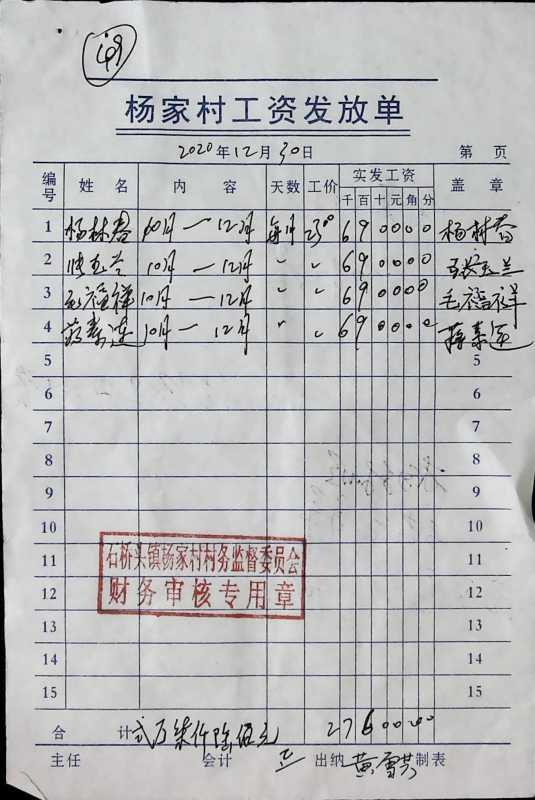 49
杨家村工资发放单
2020年12月30日 第 页
编号 姓名 内容 天数 工价 实发工资 盖章
千 百 十 元 角 分
1 杨林春 10月一12月 每月 2300 690000 杨林春
2 张玉兰 10月一12月 〃 〃 690000 张玉兰
3 毛福祥 10月一12月 〃 〃 690000 毛福祥
4 蒋素莲 10月一12月 〃 〃 690000 蒋素莲
5 5
6 6
7 7
8 8
9 9
10 10
11 11
12 12
13 13
14 14
15 15
石桥头镇杨家村村务监督委员会
财务审核专用章
合计 弍万柒仟陆佰元 2760000
主任 会计 出纳 黄雪芬 制表